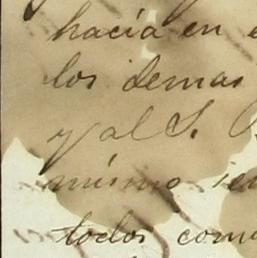 hacía en
los demas
y al S.
mismo
todos como